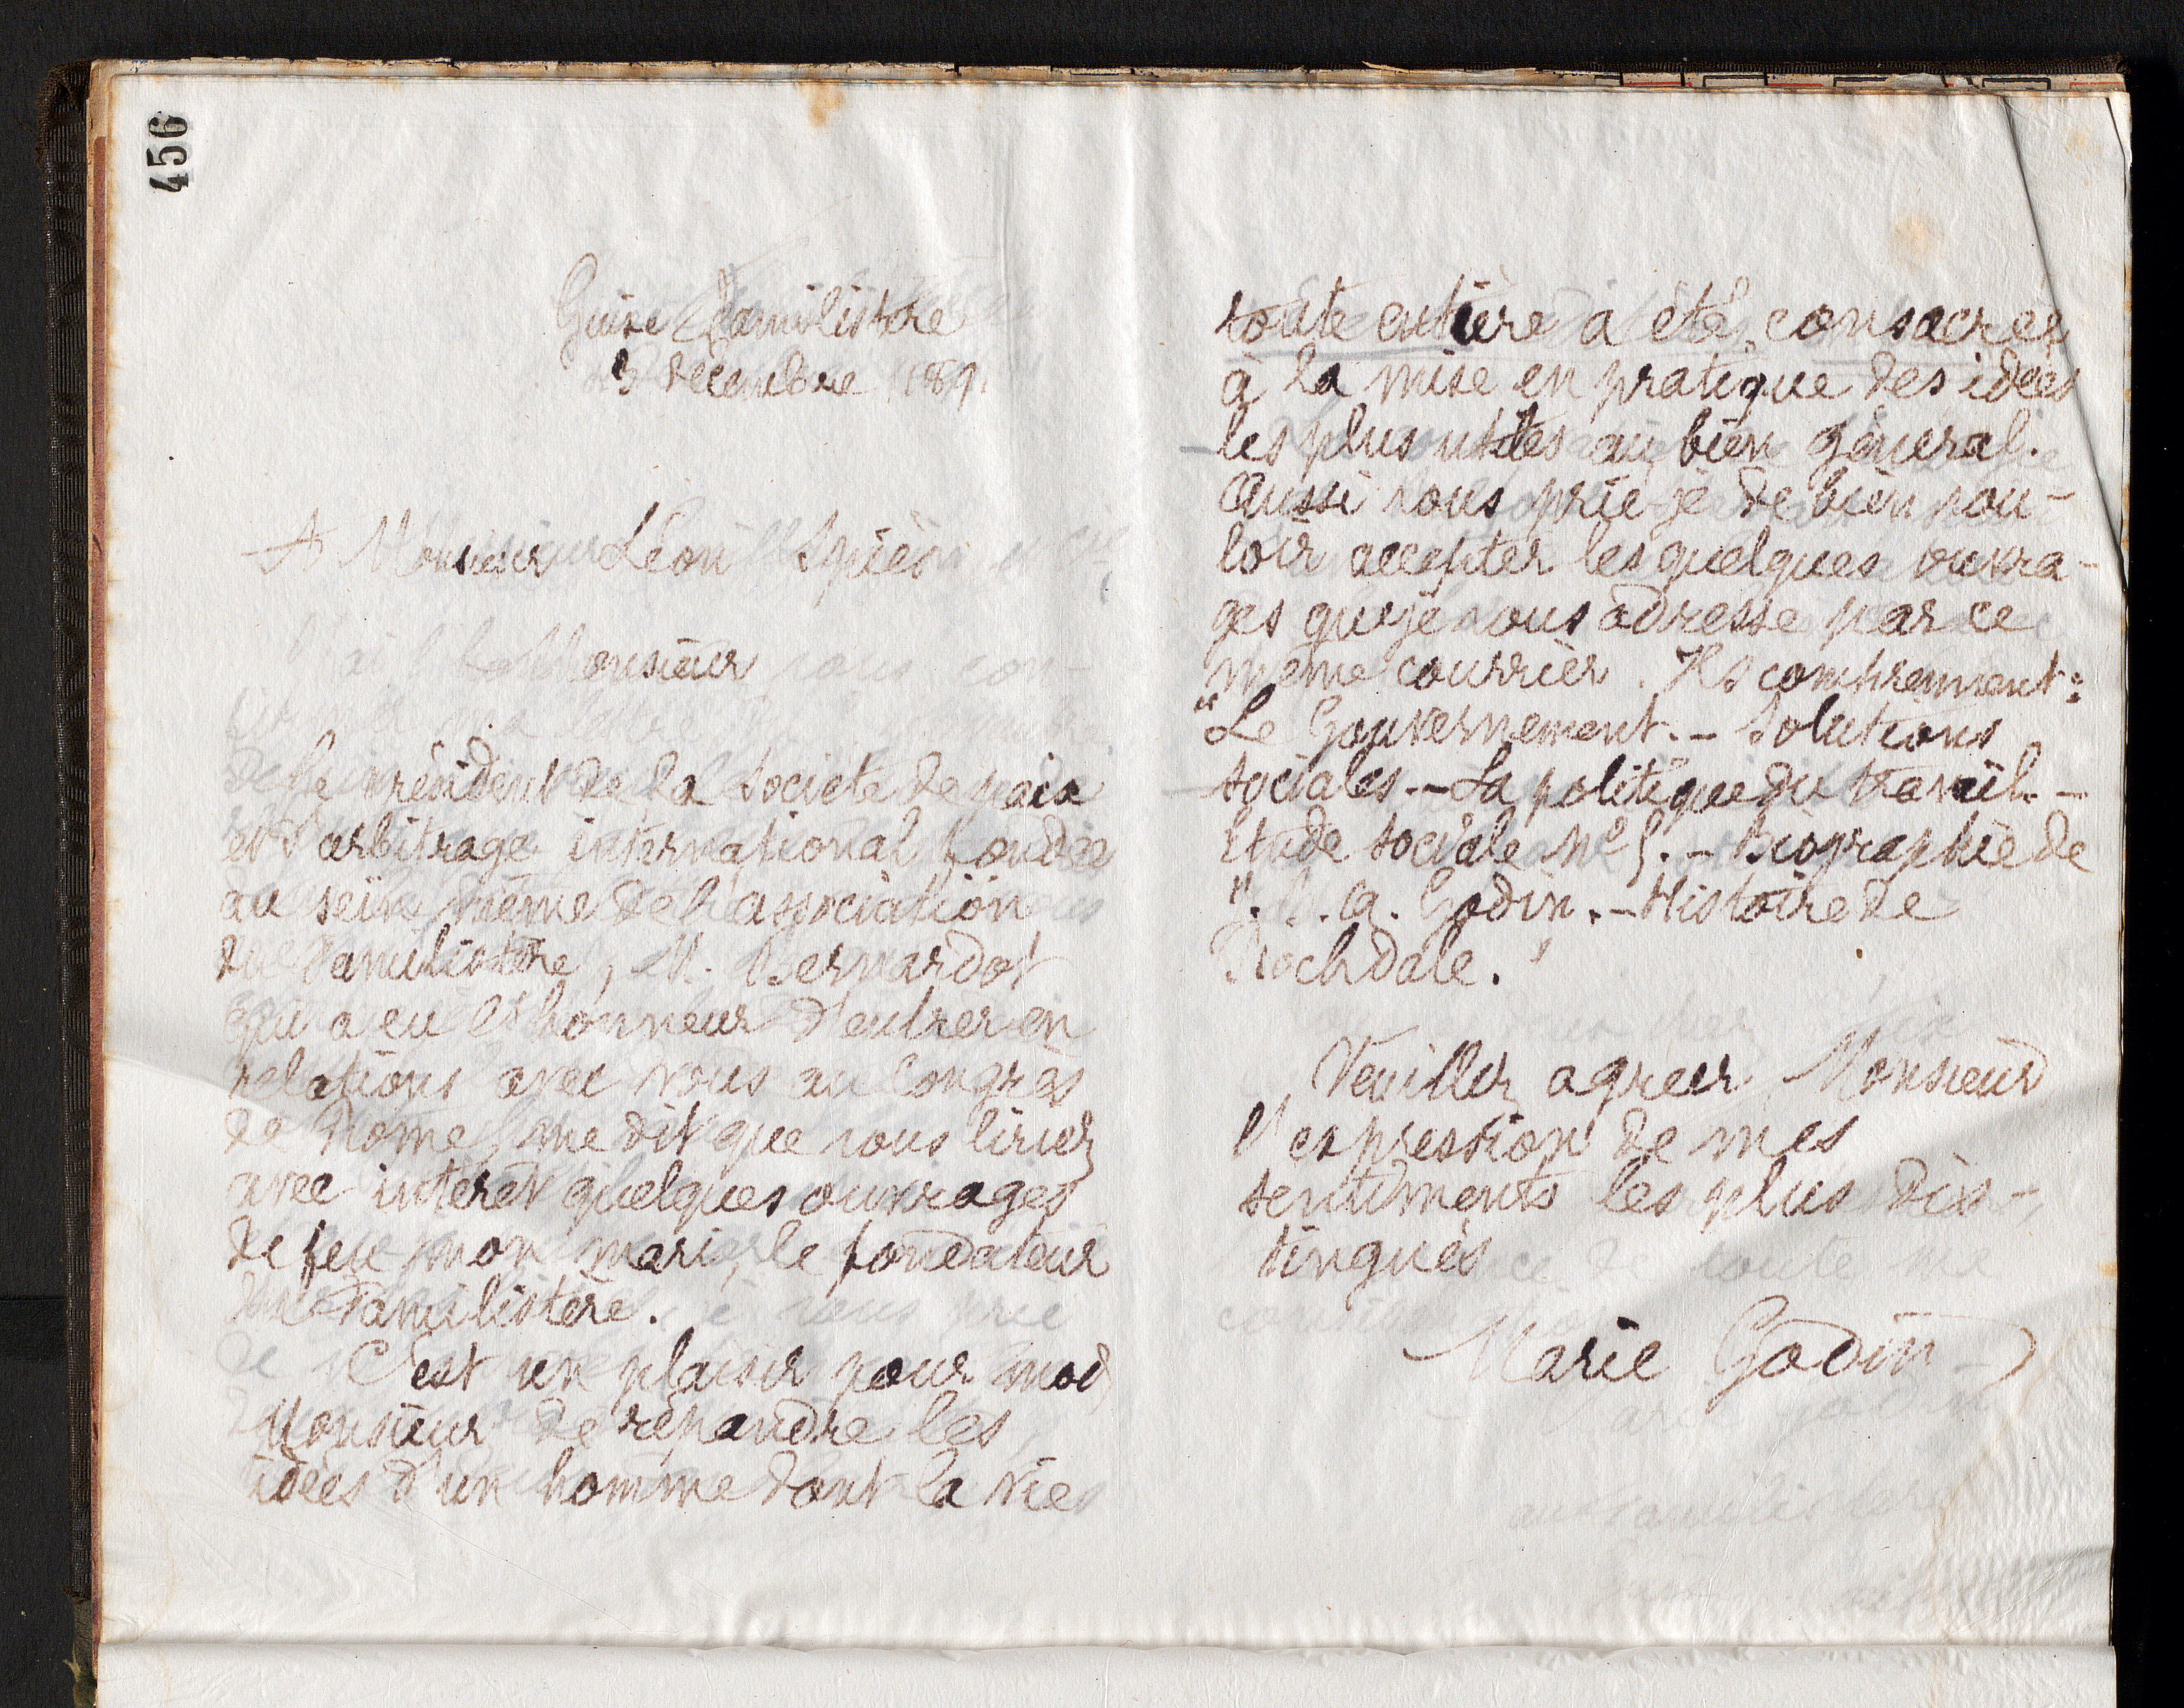 456
Guise Familistère
3 décembre 1891.
A Monsieur Léon Spiès
Monsieur
Le président de la Société de paix
et d'arbitrage international fondée
au sein même de l'association
du Familistère, M. Bernardot
qui a eu l'honneur d'entrer en
relations avec vous au Congrès
de Rome, me dit que vous liriez
avec intérêt quelques ouvrages
de feu mon mari, le fondateur
du Familistère.
C'est un plaisir pour moi,
Monsieur, de répandre les
idées d'un homme dont la vie
toute entière a été consacrée
à la mise en pratique des idées
les plus utiles au bien général.
Aussi vous prie-je de bien vou-
loir accepter les quelques ouvra-
ges que je vous adresse par ce
même courrier. Ils comprennent:
"Le Gouvernement. - Solutions
sociales. - La politique du travail. -
Etude sociale n° 5. - Biographie de
J. B. A. Godin. - Histoire de
Rochdale."
Veuillez agréer, Monsieur
l'expression de mes
sentiments les plus dis-
tingués
Marie Godin